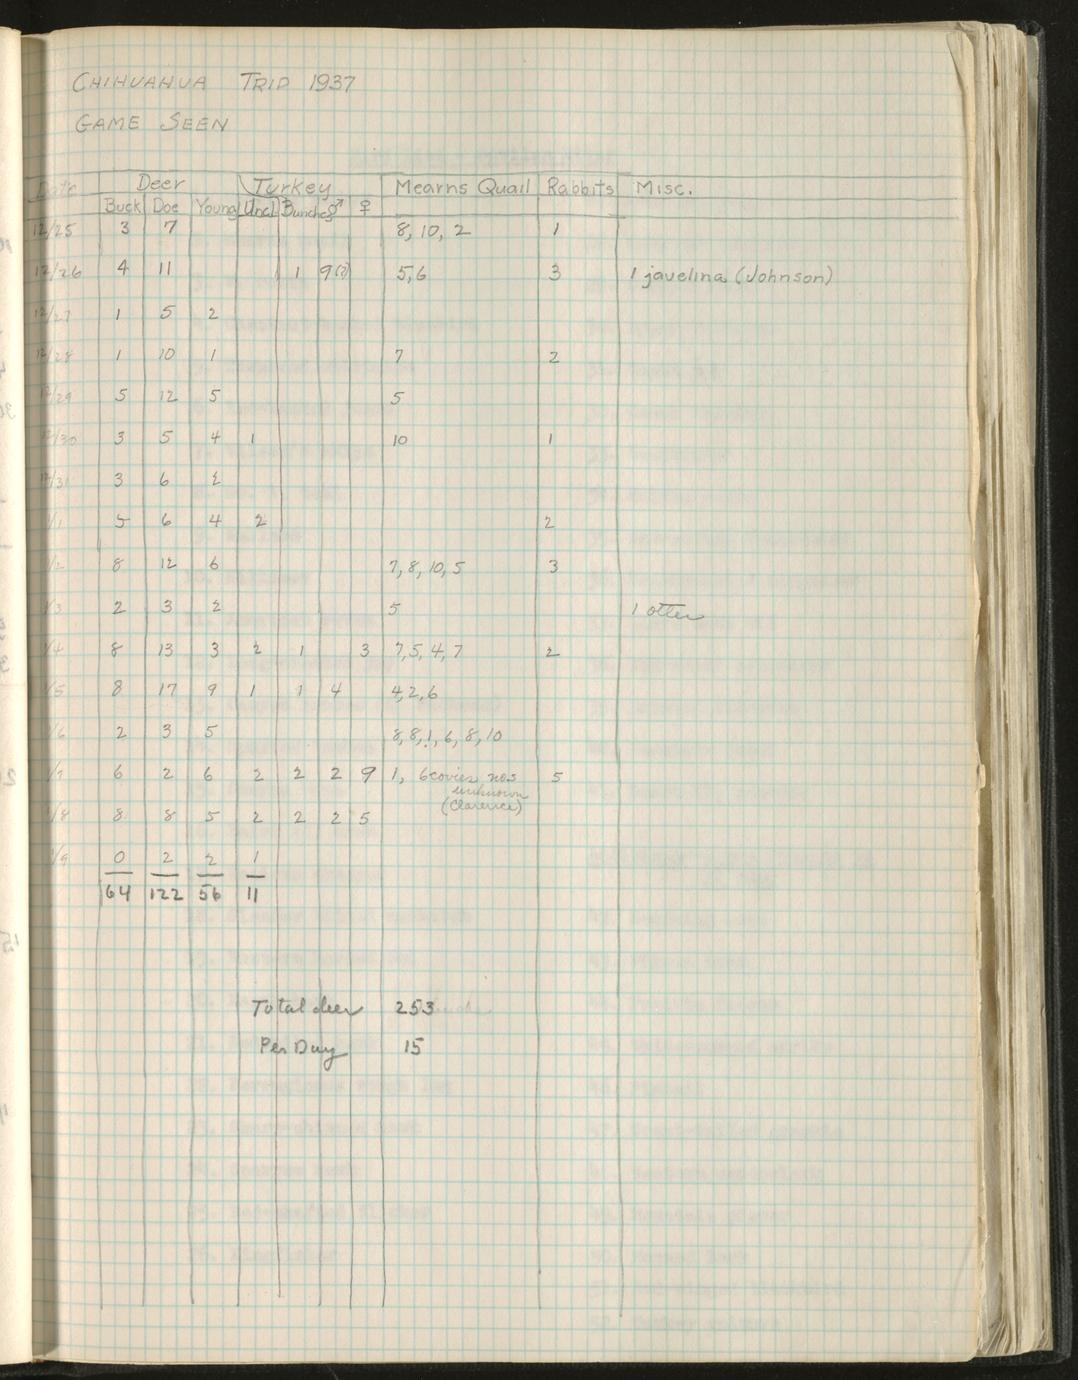 CHIHUAHUA TRIP 1937
GAME SEEN
Date Deer Turkey Mearns Quail Rabbits Misc.
Buck Doe Young Uncl Bunches ♂ ♀
12/25 3 7 8, 10, 2 1
12/26 4 11 1 9(?) 5,6 3 1 javelina (Johnson)
12/27 1 5 2
12/28 1 10 1 7 2
12/29 5 12 5 5
12/30 3 5 4 1 10 1
12/31 3 6 2
1/1 5 6 4 2 2
1/2 8 12 6 7, 8, 10, 5 3
1/3 2 3 2 5 1 otter
1/4 8 13 3 2 1 3 7, 5, 4, 7 2
1/5 8 17 9 1 1 4 4, 2, 6
1/6 2 3 5 8, 8, 1, 6, 8, 10
1/7 6 2 6 2 2 2 9 1, 6 covies nos 5
unknown
(Clarence)
1/8 8 8 5 2 2 2 5
1/9 0 2 2 1
64 122 56 11
Total deer 253
Per Day 15